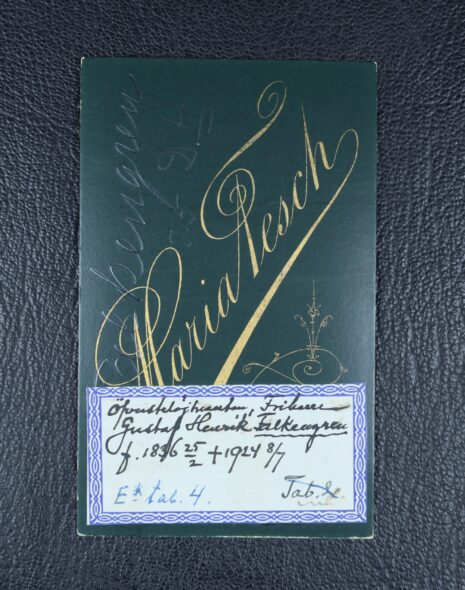 Maria Tesch
Öfverstelöjtnanten, Friherre
Gustaf Henrik Falkengren
f. 1836 25/2 + 1924 8/7
E* tab. 4.
Tab.